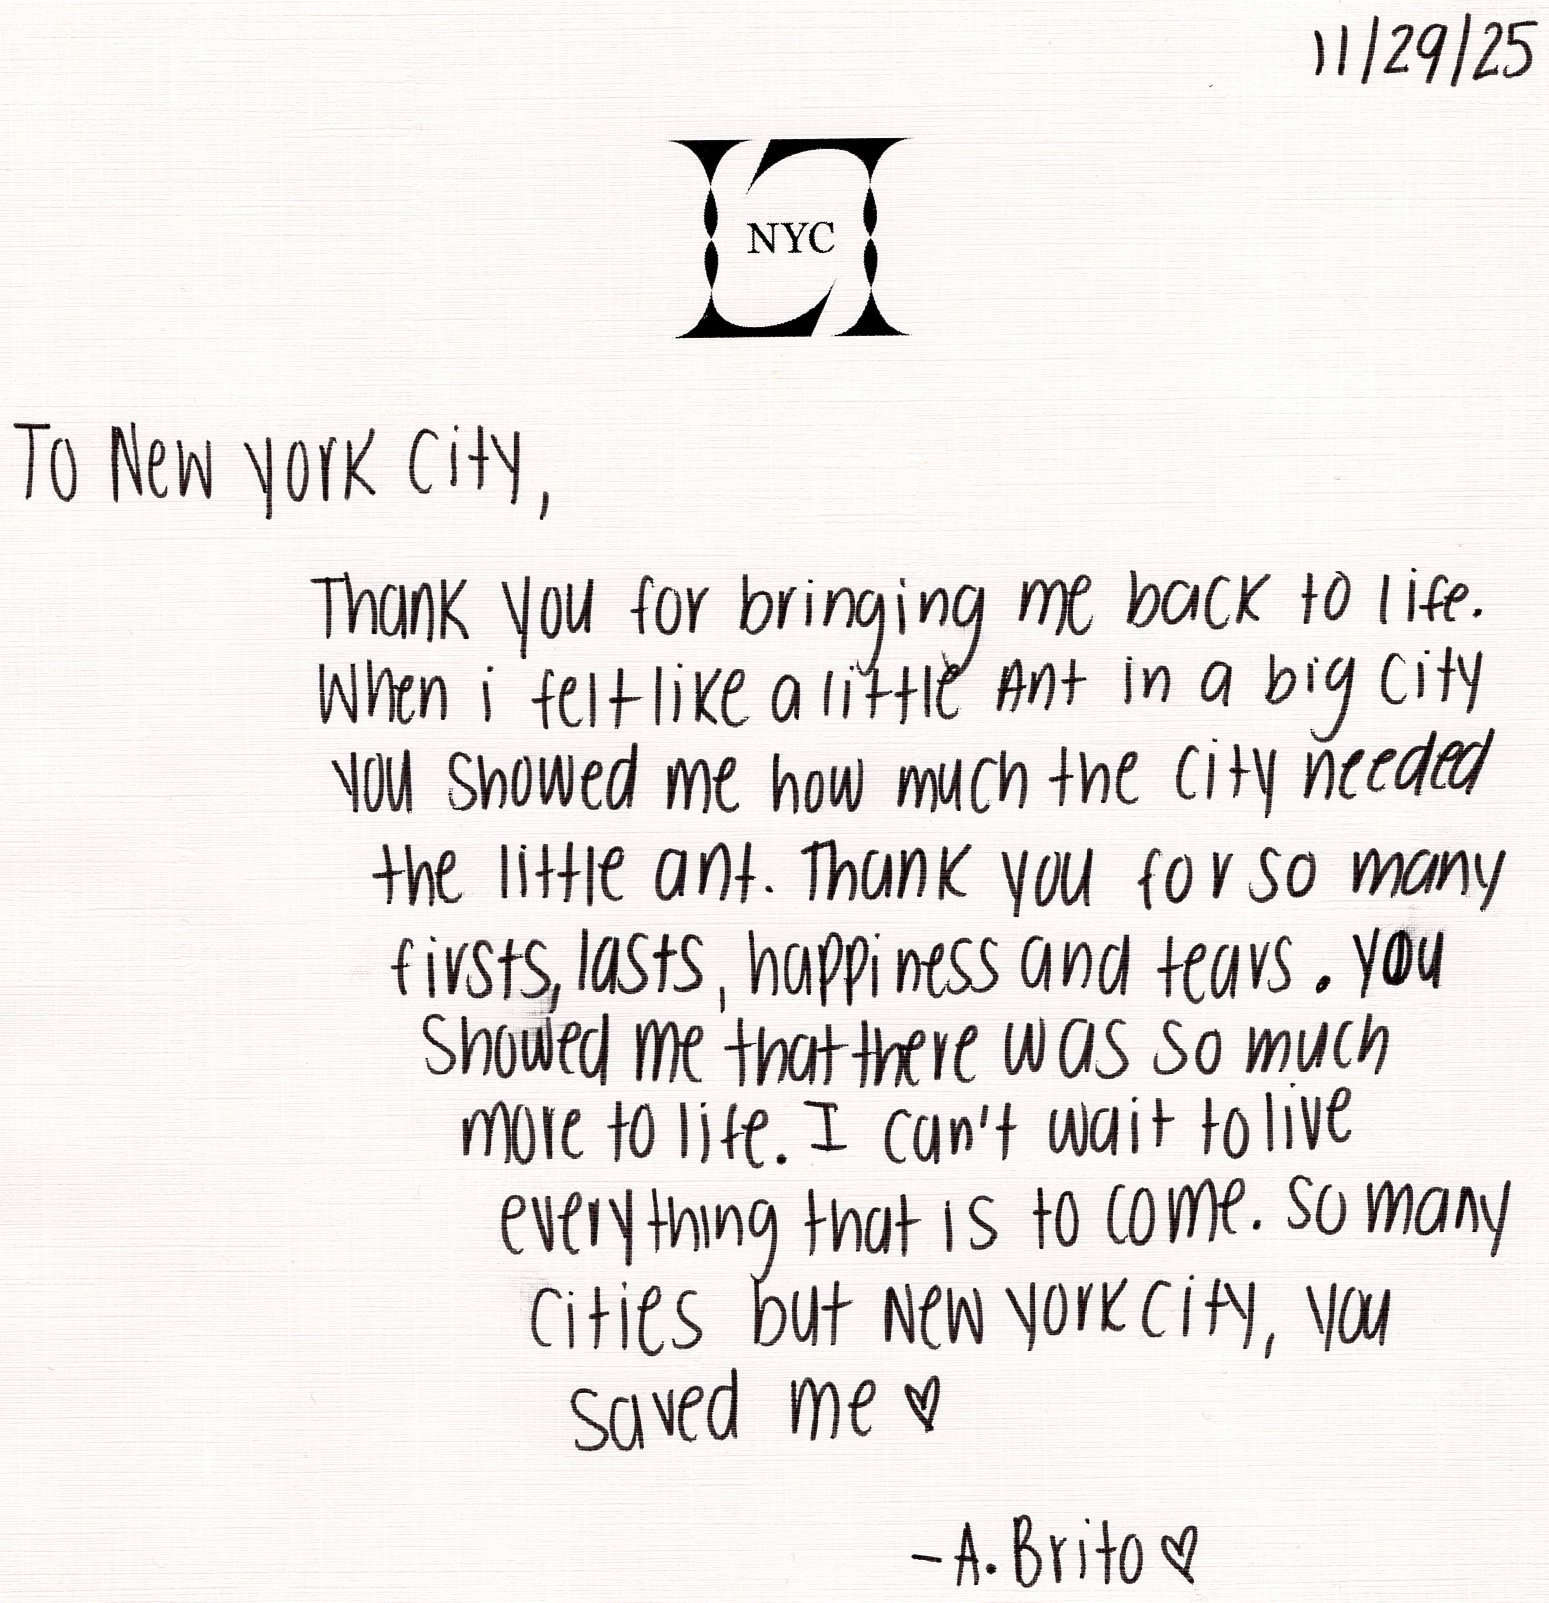 11/29/25
NYC
To New York City,
Thank you for bringing me back to life.
When i felt like a little Ant in a big city
you showed me how much the city needed
the little ant. Thank you for so many
firsts, lasts, happiness and tears. you
showed me that there was so much
more to life. I can't wait to live
everything that is to come. so many
cities but New York City, you
saved me ♡
- A. Brito ♡